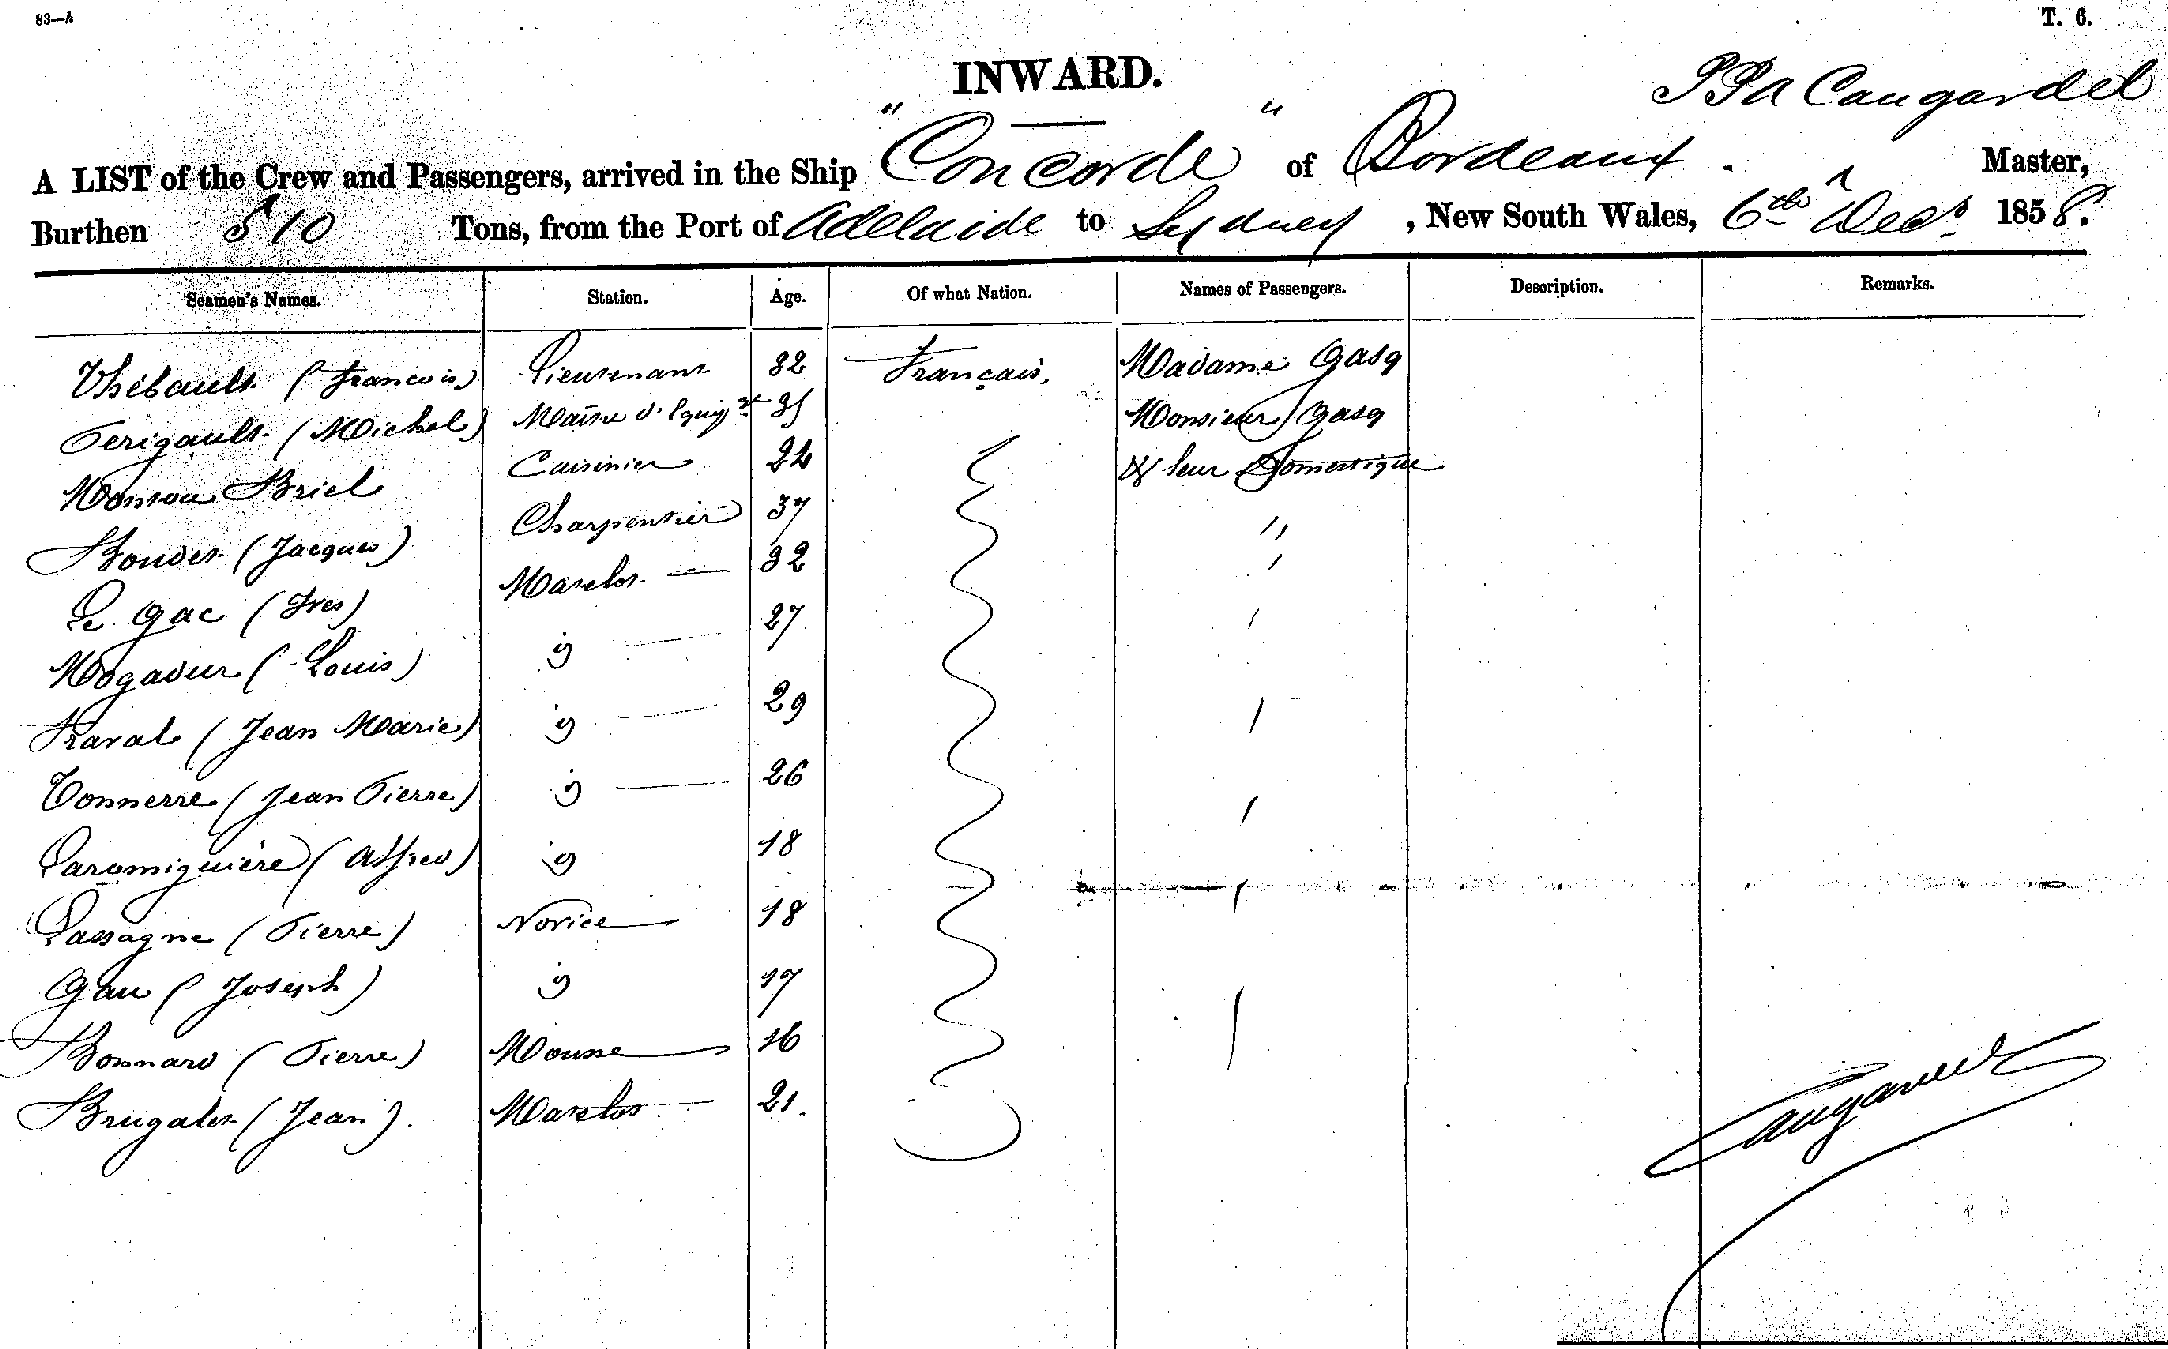 83—A
T. 6.
INWARD.
Caugardel
A LIST of the Crew and Passengers, arrived in the Ship "Concorde" of Bordeaux. Master,
Burthen 510 Tons, from the Port of Adelaide to Sydney, New South Wales, 6th Decr 1858.
Seamen's Names. Station. Age. Of what Nation. Names of Passengers. Description. Remarks.
Thébault (Francois) Lieutenant 32 Français. Madame Gasq
Perigault (Michel) Maitre d'Equipage 35 Monsieur Gasq
Briel Cuisinier 24 & leur Domestique
Boudet (Jacques) Charpentier 37 "
Le Gac (Yves) Matelot 32 "
Mogadur (Louis) 27
Kraval (Jean Marie) 29
Tonnerre (Jean Pierre) 26
Laromiguière (Alfred) 18
Lassagne (Pierre) Novice 18
Gau (Joseph) 17
Bonnard (Pierre) Mousse 16
Brugalet (Jean). Matelot 21.
Caugardel